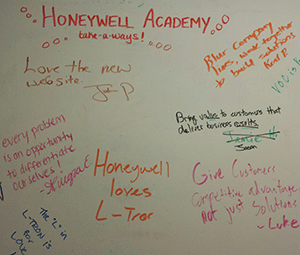 HONEYWELL ACADEMY
take-a-ways!
Love the new
website.
Blur Company
lines, work together
to build solutions
Bring value to customers that
deliver business results
Jason
every problem
is an opportunity
to differentiate
ourselves!
Honeywell
loves
L-Tron
Give Customers
Competitive advantage
Not just Solutions
- Luke
The "L" in
L-TRON is
FOR
LOVE